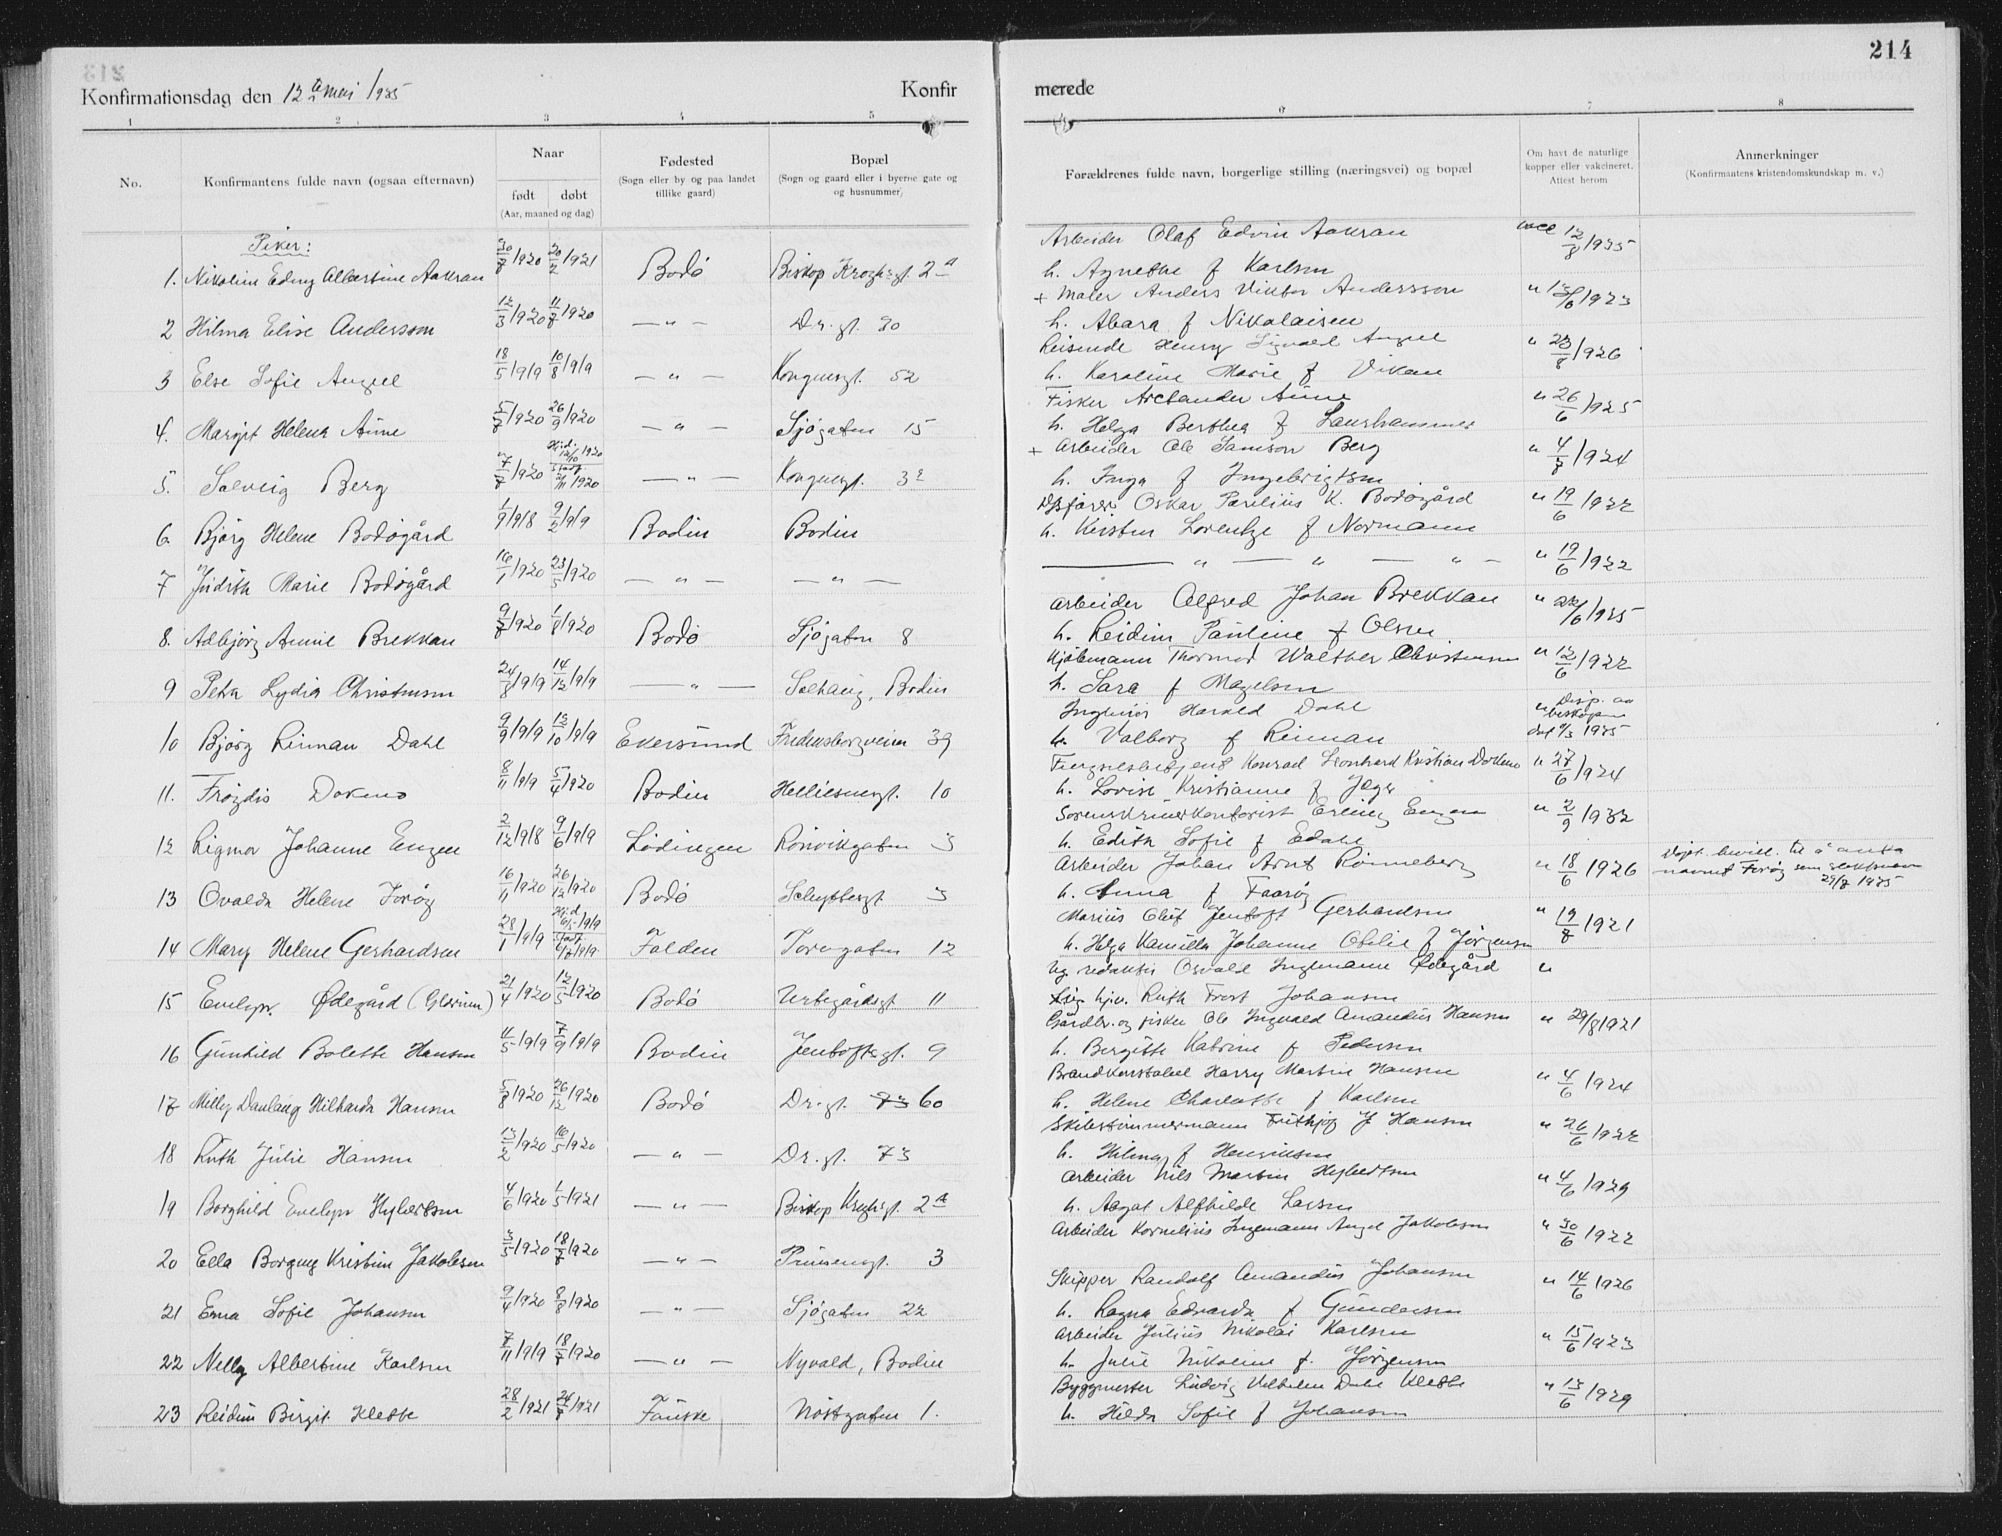 214
Konfirmationsdag den 12te mai 1935
Konfirmerede
1 2 3 4 5 6 7 8
No.
Konfirmantens fulde navn (ogsaa efternavn)
Naar
født døbt
(Aar, maaned og dag)
Fødested
(Sogn eller by og paa landet tillike gaard)
Bopæl
(Sogn og gaard eller i byerne gate og og husnummer)
Forældrenes fulde navn, borgerlige stilling (næringsvei) og bopæl
Om havt de naturlige kopper eller vakcineret. Attest herom
Anmerkninger
(Konfirmantens kristendomskundskap m. v.)
Piker:
1. Nikoline Edny Albertine Aakran 30/8 1920 20/2 1921 Bodø Biskop Kroghsgt. 2a Arbeider Olaf Edvin Aakran
h. Agnethe f Karlsen vacc 12/8 1935
2 Hilma Elise Andersson 12/3 1920 11/7 1920 — " — Dr. gt. 90 + Maler Anders Viktor Andersson
h. Abara f Nikolaisen " 1923
3 Else Sofie Angel 18/5 1919 10/8 1919 — " — Kongensgt. 52 Reisende Henry Sigvald Angel
h. Karoline Marie f Vikan " 23/8 1926
4. Margit Helene Aune 5/7 1920 26/9 1920 — " — Sjøgaten 15 Fisker Arctander Aune
h. Helga Berthea f Laurhammer " 26/6 1925
5. Solveig Berg 7/7 1920 Hj.d. 12/10 1920 stadf 2/11 1920 — " — Kongensgt. 32 + Arbeider Ole Samson Berg
h. Inga f Ingebrigtsen " 4/7 1924
6. Bjørg Helene Bodøgård 1/9 1918 9/2 1919 Bodin Bodin Oskar Parelius K. Bodøgård
h. Kirsten Lorentze f Normann " 19/6 1922
7 Judith Marie Bodøgård 16/1 1920 23/5 1920 — " — — " — — " — " — " — " 19/6 1922
8. Adbjørg Annie Brekkan 9/7 1920 1/8 1920 Bodø Sjøgaten 8 Arbeider Alfred Johan Brekkan
h. Reidun Pauline f Olsen " 22/6 1935
9 Petra Lydia Christensen 24/8 1919 14/12 1919 — " — Solhaug, Bodin Kjøbmann Thormod Walther Christensen
h. Sara f Magelsen " 12/6 1922
10 Bjørg Rinnan Dahl 9/9 1919 12/10 1919 Ekersund Fredensborgveien 39 Ingeniør Harald Dahl
h. Valborg f Rinnan " Disp. av biskopen dat 1935
11. Frøydis Dokmo 8/11 1919 5/4 1920 Bodin Hellesensgt. 10 Fengselsbetjent Konrad Leonhard Kristian Dokmo
h. Lovise Kristianne f Jæger " 27/6 1924
12 Sigmor Johanne Engen 2/12 1918 9/6 1919 Lødingen Rønvikgaten 3 Sorenskriverkontorist Erling Engen
h. Edith Sofie f Edahl " 2/9 1932
13 Ovalda Helene Forøy 16/11 1920 26/12 1920 Bodø Schyttesgt. 3 Arbeider Johan Arnt Rønneberg
h. Anna f Faarøy " 18/6 1926 navnet Forøy som slektsnavn 1935
14 Mary Helene Gerhardsen 28/1 1919 Hj.d. 1919 stadf 1919 Folden Torvgaten 12 Marius Oluf Jentoft Gerhardsen
h. Helga Kamilla Johanne Otelie f Jørgensen " 19/8 1921
15 Evelyn Ødegård 21/4 1920 12/5 1920 Bodø 11 Ug. redaktør Osvald Ingemann Ødegård
hjv. Ruth Frost Johansen "
16 Gunhild Bolette Hansen 4/5 1919 7/9 1919 Bodin Jentoftsgt. 9 Gårdbr. og fisker Ole Ingvald Amandus Hansen
h. Bergitte Katrine f Pedersen " 29/8 1921
17 Milly Danlaug Hilharda Hansen 5/8 1920 26/12 1920 Bodø Dr. gt. 73 60 Brandkonstabel Harry Martin Hansen
h. Helene Charlotte f Karlsen " 4/6 1924
18 Ruth Julie Hansen 13/2 1920 16/5 1920 — " — Dr. gt. 73 Skibstimmermann Frithjof J Hansen
h. Hilma f Henriksen " 26/6 1922
19 Borghild Evelyn Hylbertsen 4/6 1920 1/5 1921 — " — Biskop Kroghsgt 2a Arbeider Nils Martin Hylbertsen
h. Aagot Alfhilde Larsen " 4/6 1929
20 Ella Borgny Kristine Jakobsen 3/5 1920 18/7 1920 — " — Prinsensgt. 3 Arbeider Kornelius Ingemann Angel Jakobsen " 30/6 1922
21 Erna Sofie Johansen 9/4 1920 8/8 1920 — " — Sjøgaten 22 Skipper Randolf Amandus Johansen
h. Ragna Edvarda f Gundersen " 14/6 1926
22 Nelly Albertine Karlsen 7/11 1919 18/7 1920 — " — Nyvold, Bodin Arbeider Julius Nikolai Karlsen
h. Julie Nikoline f. Jørgensen " 15/6 1923
23 Reidun Birgit Klette 28/2 1921 24/7 1921 Fauske Nostgaten 1. Byggmester Ludvig Vilhelm Dahl Klette
h. Hilda Sofie f Johansen " 13/6 1929